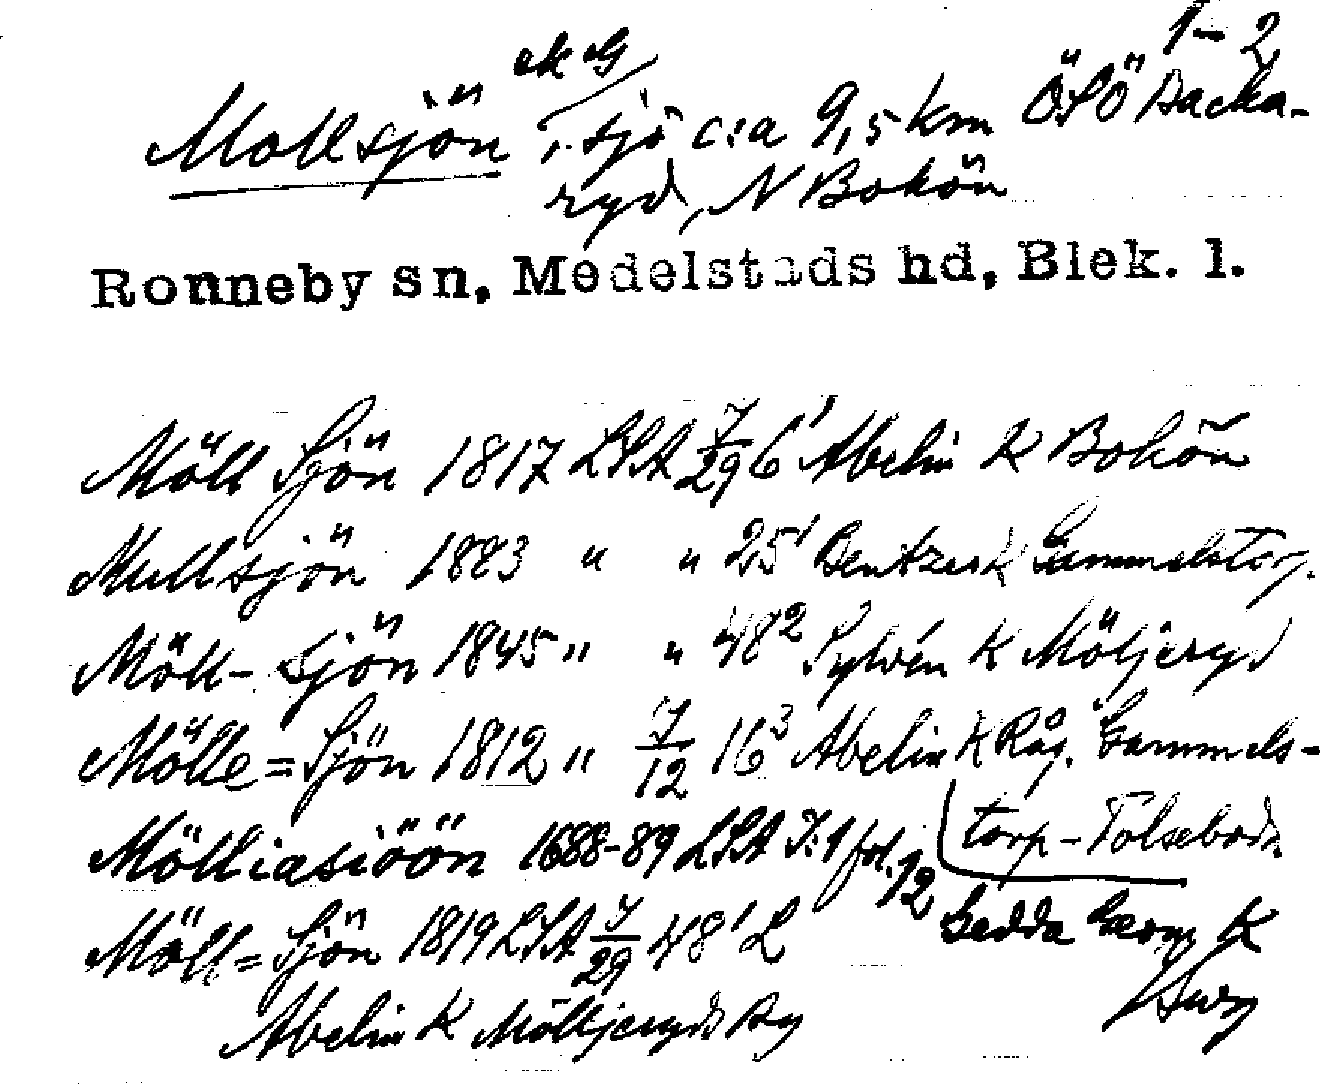 1-2
Mollsjön, sjö c:a 9,5 km ÖSÖ Backa-
ryd, N Bokön
Ronneby sn, Medelstads hd, Blek. l.
Möll Sjön 1817 LSA 7/29 6¹ Abelin K Bokön
Mullsjön 1883 " " 25¹ Bentzer K Gammelstorp.
Möll- sjön 1845 " " 48² Sylvén K Möljeryd
Mölle=Sjön 1812 " 7/12 16³ Abelin K Råg. Gammels-
torp-Tolseboda
Mölliasiöön 1688-89 LSA I:1 fol. 12
Gedda Geom K
Möll=Sjön 1819 LSA 7/29 48¹ L
Abelin K Mölljeryds By